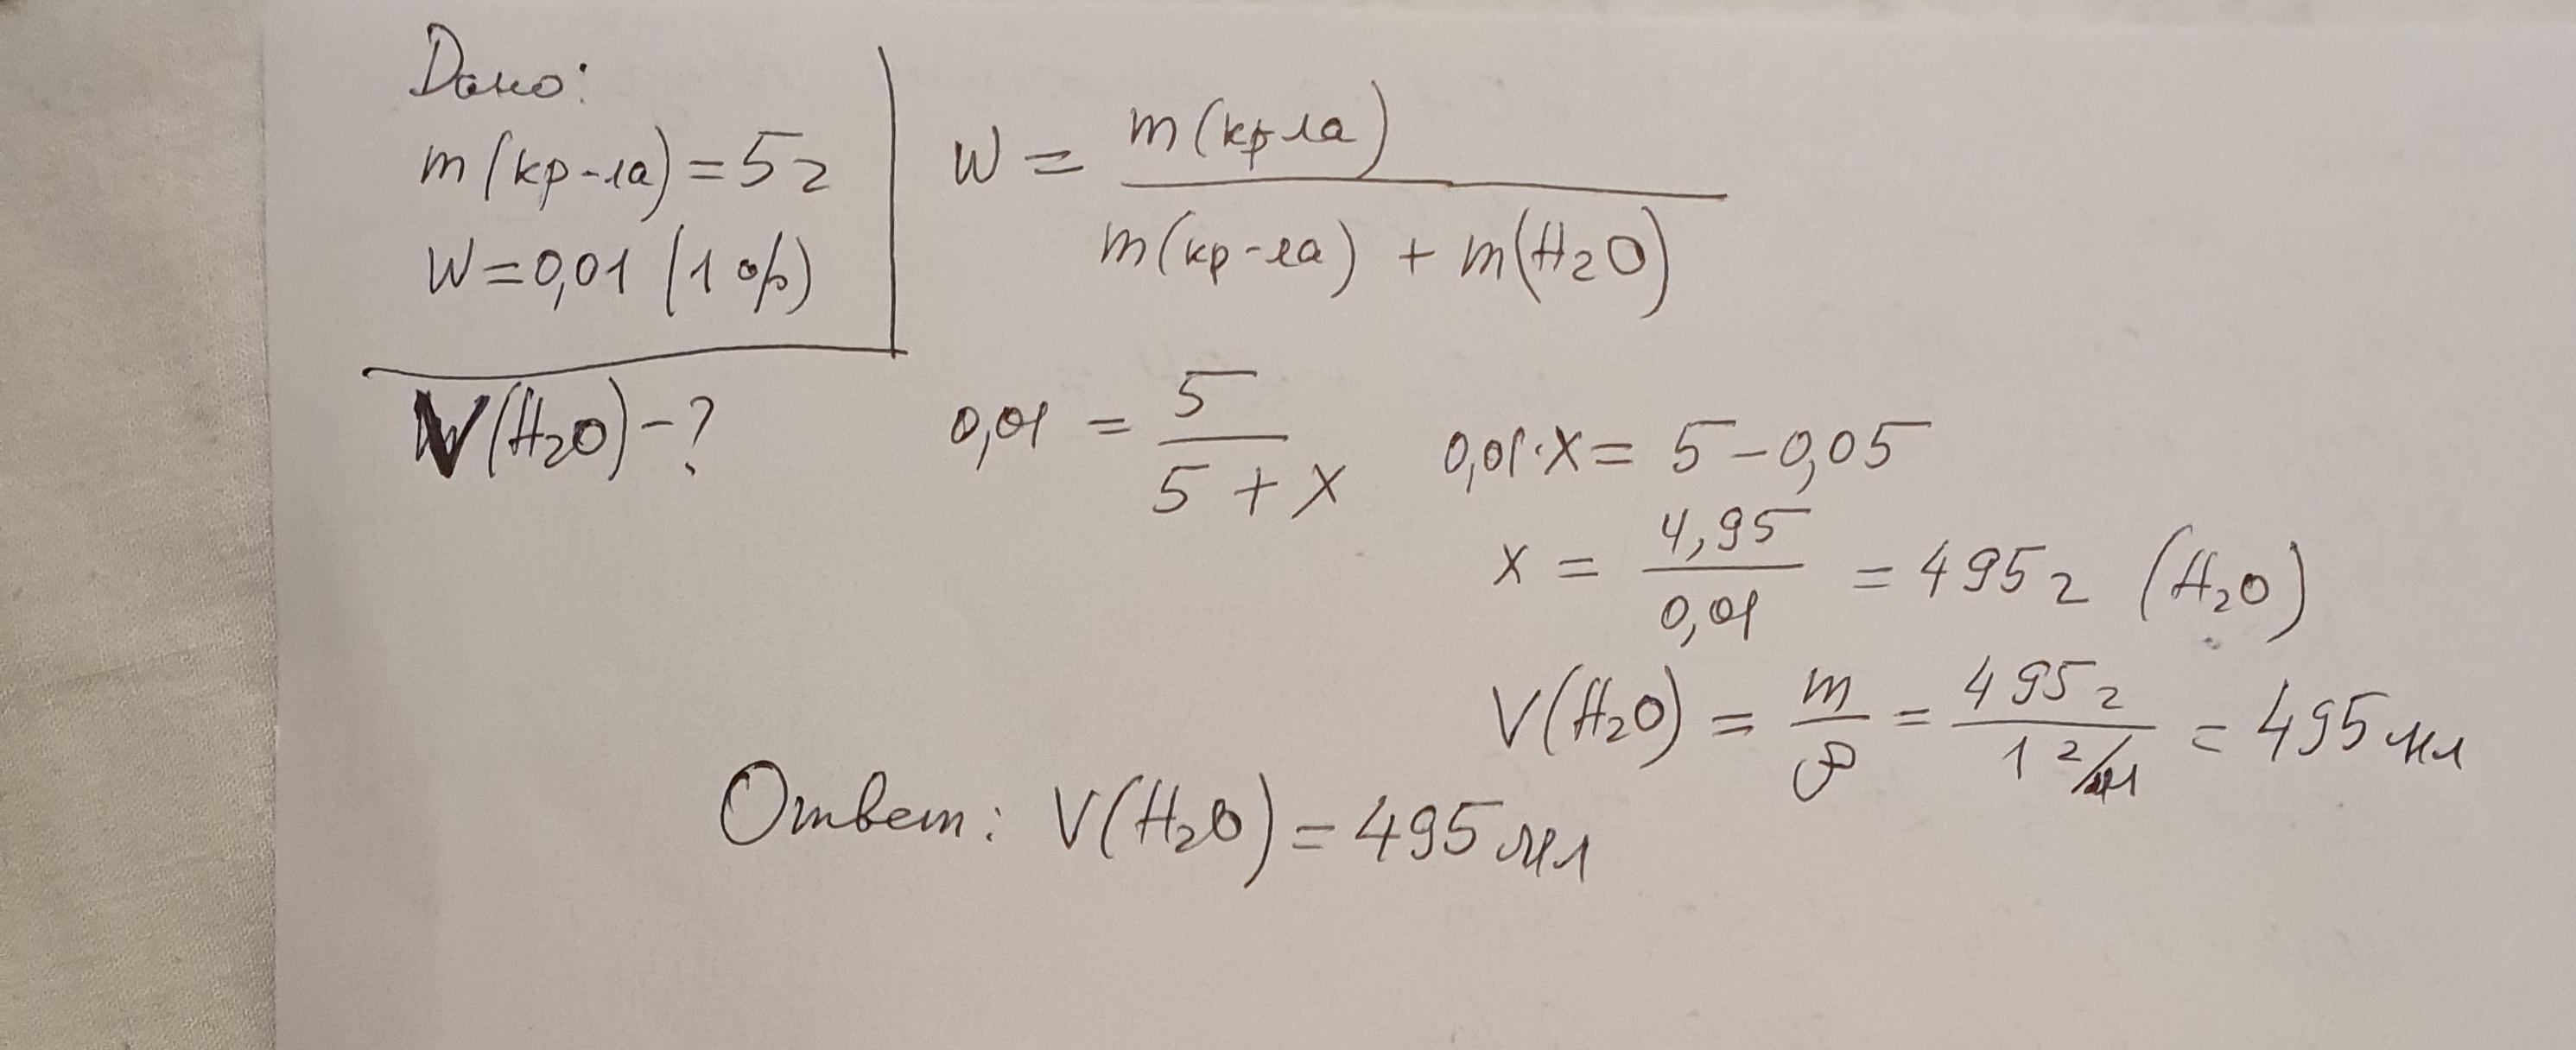 Дано:
m(кр-ла) = 5г
W = 0,01 (1%)
V(H₂O) - ?
W = m(кр-ла) / m(кр-ла) + m(H₂O)
0,01 = 5 / 5 + x
0,01·x = 5 - 0,05
x = 4,95 / 0,01 = 495 г (H₂O)
V(H₂O) = m / ρ = 495 г / 1 г/мл = 495 мл
Ответ: V(H₂O) = 495 мл